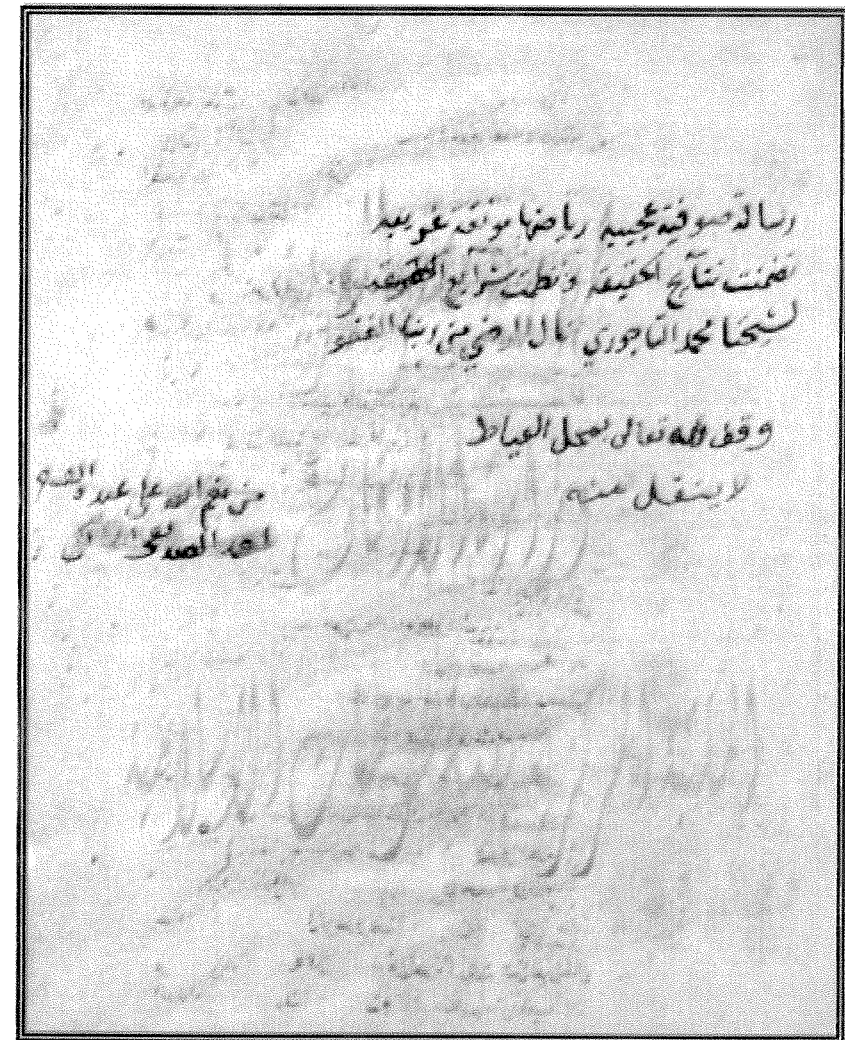 رسالة صوفية عجيبه رياضها مونقة غريبه
تضمنت نتائج الحقيقه ونظمت شرايع الطريقه
لشيخنا محمد التاجوري نال الرضي من ربنا الغفور
وقف لله تعالى بمحل العياط
لا ينقل عنه
من نعم الله على عبده
احمد الصديق